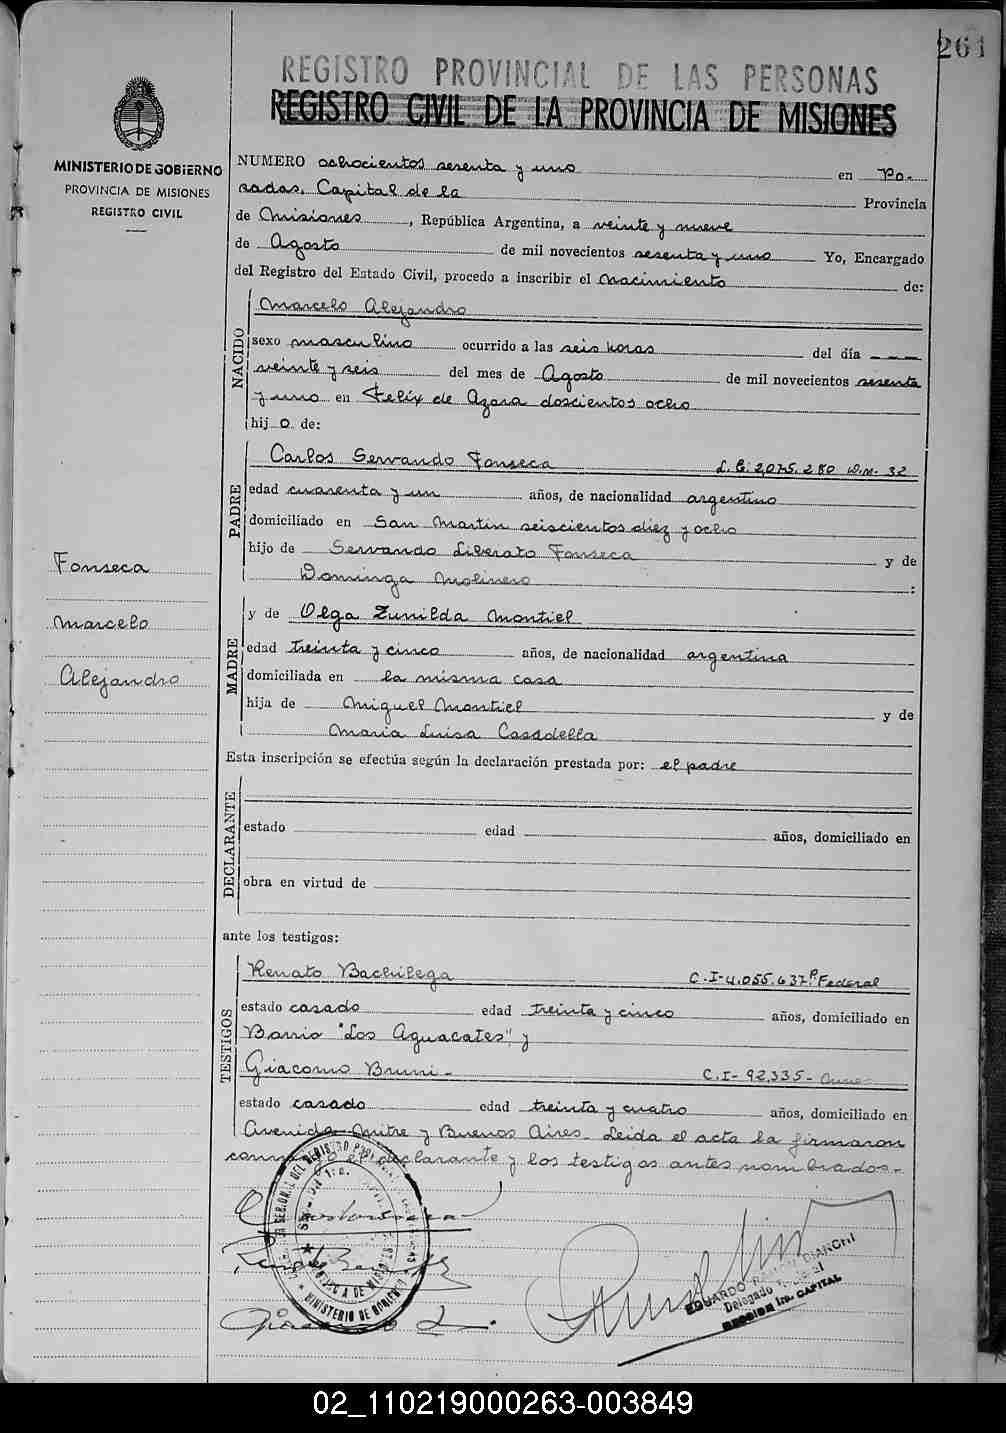 261
REGISTRO PROVINCIAL DE LAS PERSONAS
REGISTRO CIVIL DE LA PROVINCIA DE MISIONES
MINISTERIO DE GOBIERNO
PROVINCIA DE MISIONES
REGISTRO CIVIL
NUMERO ochocientos sesenta y uno en Po-
sadas, Capital de la Provincia
de Misiones, República Argentina, a veinte y nueve
de Agosto de mil novecientos sesenta y uno Yo, Encargado
del Registro del Estado Civil, procedo a inscribir el nacimiento de:
NACIDO
Marcelo Alejandro
sexo masculino ocurrido a las seis horas del día ---
veinte y seis del mes de Agosto de mil novecientos sesenta
y uno en Felix de Azara doscientos ocho
hijo de:
PADRE
Carlos Servando Fonseca L.E. 2,075.280 D.M. 32
edad cuarenta y un años, de nacionalidad argentino
domiciliado en San Martin seiscientos diez y ocho
hijo de Servando Liberato Fonseca y de
Dominga Molinero :
Fonseca
Marcelo
Alejandro
MADRE
y de Olga Zunilda Montiel
edad treinta y cinco años, de nacionalidad argentina
domiciliada en la misma casa
hija de Miguel Montiel y de
Maria Luisa Casadella
Esta inscripción se efectúa según la declaración prestada por: el padre
DECLARANTE
estado edad años, domiciliado en
obra en virtud de
ante los testigos:
TESTIGOS
Renato Bachilega C.I-4.055.637 P. Federal
estado casado edad treinta y cinco años, domiciliado en
Barrio "Los Aguacates", y
Giacomo Bruni- C.I- 92.335-
estado casado edad treinta y cuatro años, domiciliado en
Avenida Mitre y Buenos Aires- Leida el acta la firmaron
declarante y los testigos antes nombrados.-
MINISTERIO DE GOBIERNO
EDUARDO RAMON BIANCHI
Delegado Titular
SECCION 1ra. CAPITAL
02_110219000263-003849